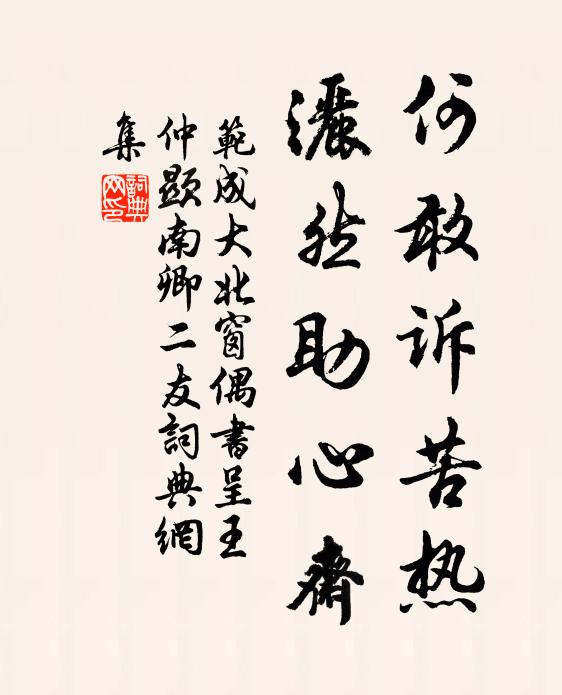 何敢诉苦热
灑然助心齋
範成大北窗偶書呈王
仲顯南卿二友詞典網
集
詞典網印